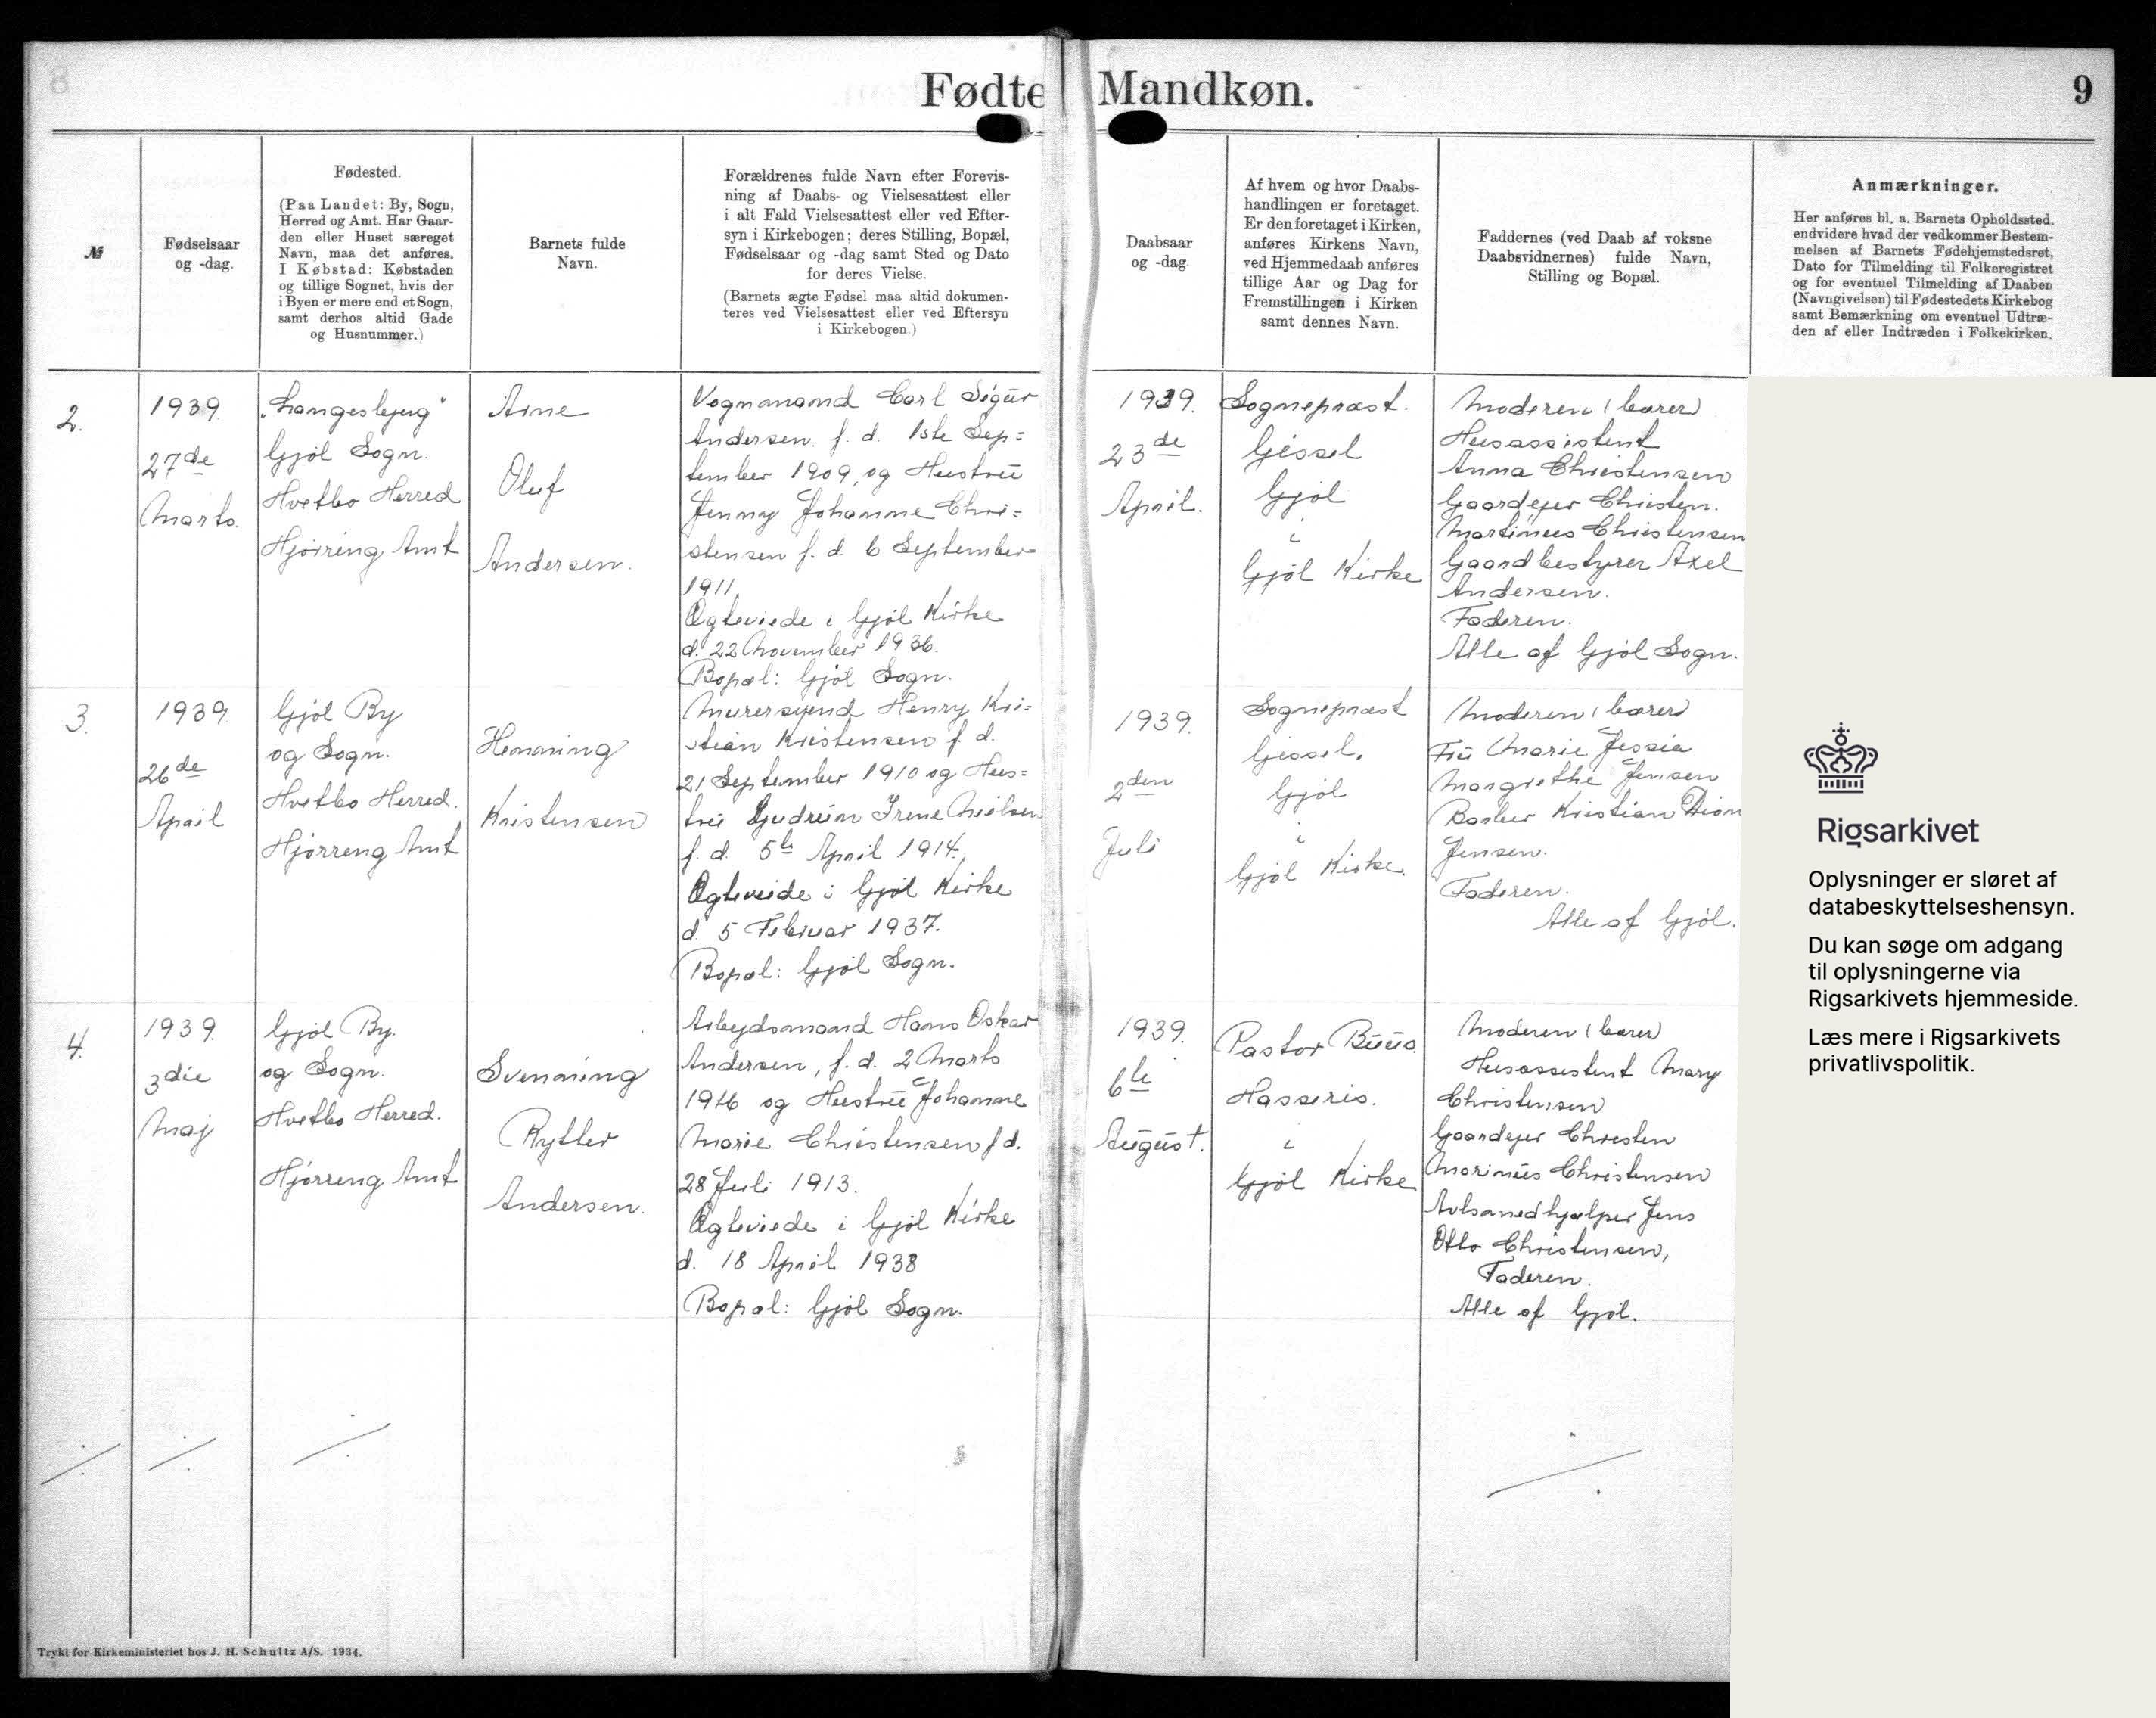 Fødte Mandkøn.
9
№
Fødselsaar
og -dag.
Fødested.
(Paa Landet: By, Sogn,
Herred og Amt. Har Gaar-
den eller Huset særeget
Navn, maa det anføres.
I Købstad: Købstaden
og tillige Sognet, hvis der
i Byen er mere end et Sogn,
samt derhos altid Gade
og Husnummer.)
Barnets fulde
Navn.
Forældrenes fulde Navn efter Forevis-
ning af Daabs- og Vielsesattest eller
i alt Fald Vielsesattest eller ved Efter-
syn i Kirkebogen; deres Stilling, Bopæl,
Fødselsaar og -dag samt Sted og Dato
for deres Vielse.
(Barnets ægte Fødsel maa altid dokumen-
teres ved Vielsesattest eller ved Eftersyn
i Kirkebogen.)
Daabsaar
og -dag.
Af hvem og hvor Daabs-
handlingen er foretaget.
Er den foretaget i Kirken,
anføres Kirkens Navn,
ved Hjemmedaab anføres
tillige Aar og Dag for
Fremstillingen i Kirken
samt dennes Navn.
Faddernes (ved Daab af voksne
Daabsvidnernes) fulde Navn,
Stilling og Bopæl.
Anmærkninger.
Her anføres bl. a. Barnets Opholdssted,
endvidere hvad der vedkommer Bestem-
melsen af Barnets Fødehjemstedsret,
Dato for Tilmelding til Folkeregistret
og for eventuel Tilmelding af Daaben
(Navngivelsen) til Fødestedets Kirkebog
samt Bemærkning om eventuel Udtræ-
den af eller Indtræden i Folkekirken.
2.
1939.
27de
Marts.
"Langesbjerg"
Gjøl Sogn.
Hvetbo Herred
Hjørring Amt
Arne
Oluf
Andersen.
Vognmand Carl Sigur
Andersen. f. d. 1ste Sep=
tember 1909, og Hustru
Jenny Johanne Chri=
stensen f. d. 6 September
1911.
Ægteviede i Gjøl Kirke
d. 22 November 1936.
Bopæl: Gjøl Sogn.
1939.
23de
April.
Sognepræst.
Gjessel
Gjøl
i
Gjøl Kirke
Moderen (bærer)
Husassistent
Anna Christensen
Gaardejer Christen.
Martinus Christensen
Gaardbestyrer Axel
Andersen.
Faderen.
Alle af Gjøl Sogn.
3.
1939.
26de
April
Gjøl By
og Sogn.
Hvetbo Herred.
Hjørreng Amt
Henning
Kristensen
Murersvend Henry Kri=
stian Kristensen f. d.
21 September 1910 og Hus=
tru Gudrun Irene Nielsen
f. d. 5te April 1914,
Ægteviede i Gjøl Kirke
d. 5 Februar 1937.
Bopæl: Gjøl Sogn.
1939.
2den
Juli
Sognepræst
Gjessel.
Gjøl
i
Gjøl Kirke.
Moderen (bærer)
Fru Marie Jessia
Margrethe Jensen
Barber Kristian Dion
Jensen.
Faderen.
Alle af Gjøl.
4.
1939.
3die
Maj
Gjøl By.
og Sogn.
Hvetbo Herred.
Hjørreng Amt
Svenning
Rytter
Andersen.
Arbejdsmand Hans Oskar
Andersen, f. d. 2 Marts
1916 og Hustru Johanne
Marie Christensen f d.
28 Juli 1913.
Ægteviede i Gjøl Kirke
d. 18 April 1938
Bopæl: Gjøl Sogn.
1939.
6te
August.
Pastor Buus.
Hasseris.
i
Gjøl Kirke
Moderen (bærer)
Husassistent Mary
Christensen
Gaardejer Christen
Marinus Christensen
Avlsmedhjælper Jens
Otto Christensen,
Faderen.
Alle af Gjøl.
Trykt for Kirkeministeriet hos J. H. Schultz A/S. 1934.
Rigsarkivet
Oplysninger er sløret af
databeskyttelseshensyn.
Du kan søge om adgang
til oplysningerne via
Rigsarkivets hjemmeside.
Læs mere i Rigsarkivets
privatlivspolitik.